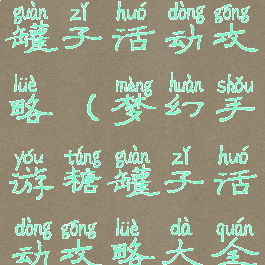 guàn zǐ huó dòng gōng
罐子活动攻
lüè mèng huàn shǒu
略（梦幻手
yóu táng guàn zǐ huó
游糖罐子活
dòng gōng lüè dà quán
动攻略大全